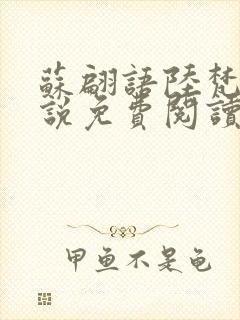 蘇翩語陸梵
說免費閱讀
甲鱼不是龟